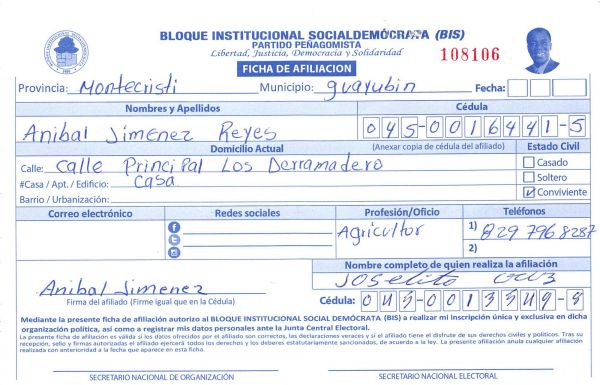 BLOQUE INSTITUCIONAL SOCIALDEMÓCRATA (BIS)
PARTIDO PEÑAGOMISTA
Libertad, Justicia, Democracia y Solidaridad
108106
FICHA DE AFILIACION
Provincia: Montecristi Municipio: guayubin Fecha:
Nombres y Apellidos Cédula
Anibal Jimenez Reyes 045-0016441-5
Domicilio Actual (Anexar copia de cédula del afiliado) Estado Civil
Calle: Calle Principal Los Derramadero Casado
#Casa / Apt. / Edificio: Casa Soltero
Barrio / Urbanización: Conviviente
Correo electrónico Redes sociales Profesión/Oficio Teléfonos
Agricultor 1) 829 796 8287
2)
Nombre completo de quien realiza la afiliación
Joselito Cruz
Anibal Jimenez
Firma del afiliado (Firme igual que en la Cédula) Cédula: 045-0013549-8
Mediante la presente ficha de afiliación autorizo al BLOQUE INSTITUCIONAL SOCIAL DEMÓCRATA (BIS) a realizar mi inscripción única y exclusiva en dicha
organización política, así como a registrar mis datos personales ante la Junta Central Electoral.
La presente ficha de afiliación es válida si los datos ofrecidos por el afiliado son correctos, las declaraciones veraces y si el afiliado tiene el disfrute de sus derechos civiles y políticos. Tras su
recepción, sello y firmas autorizadas el afiliado ejercerá todos los derechos y los deberes estatutariamente sancionados, de acuerdo a la ley. La presente afiliación anula cualquier afiliación
realizada con anterioridad a la fecha que aparece en esta ficha.
SECRETARIO NACIONAL DE ORGANIZACIÓN SECRETARIO NACIONAL ELECTORAL